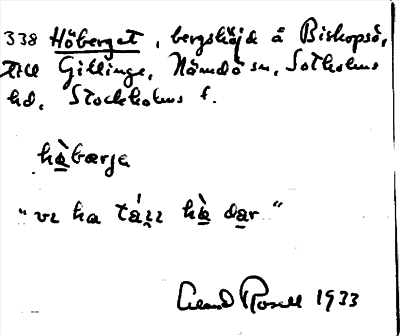 338 Höberget, bergshöjd å Biskopsö,
till Gillinge, Nämdö sn, Sotholms
hd, Stockholms l.
hò̱bærjɛ
"vɪ ha tá̱ɪɪ hò̱ da̱r"
Rosell 1933